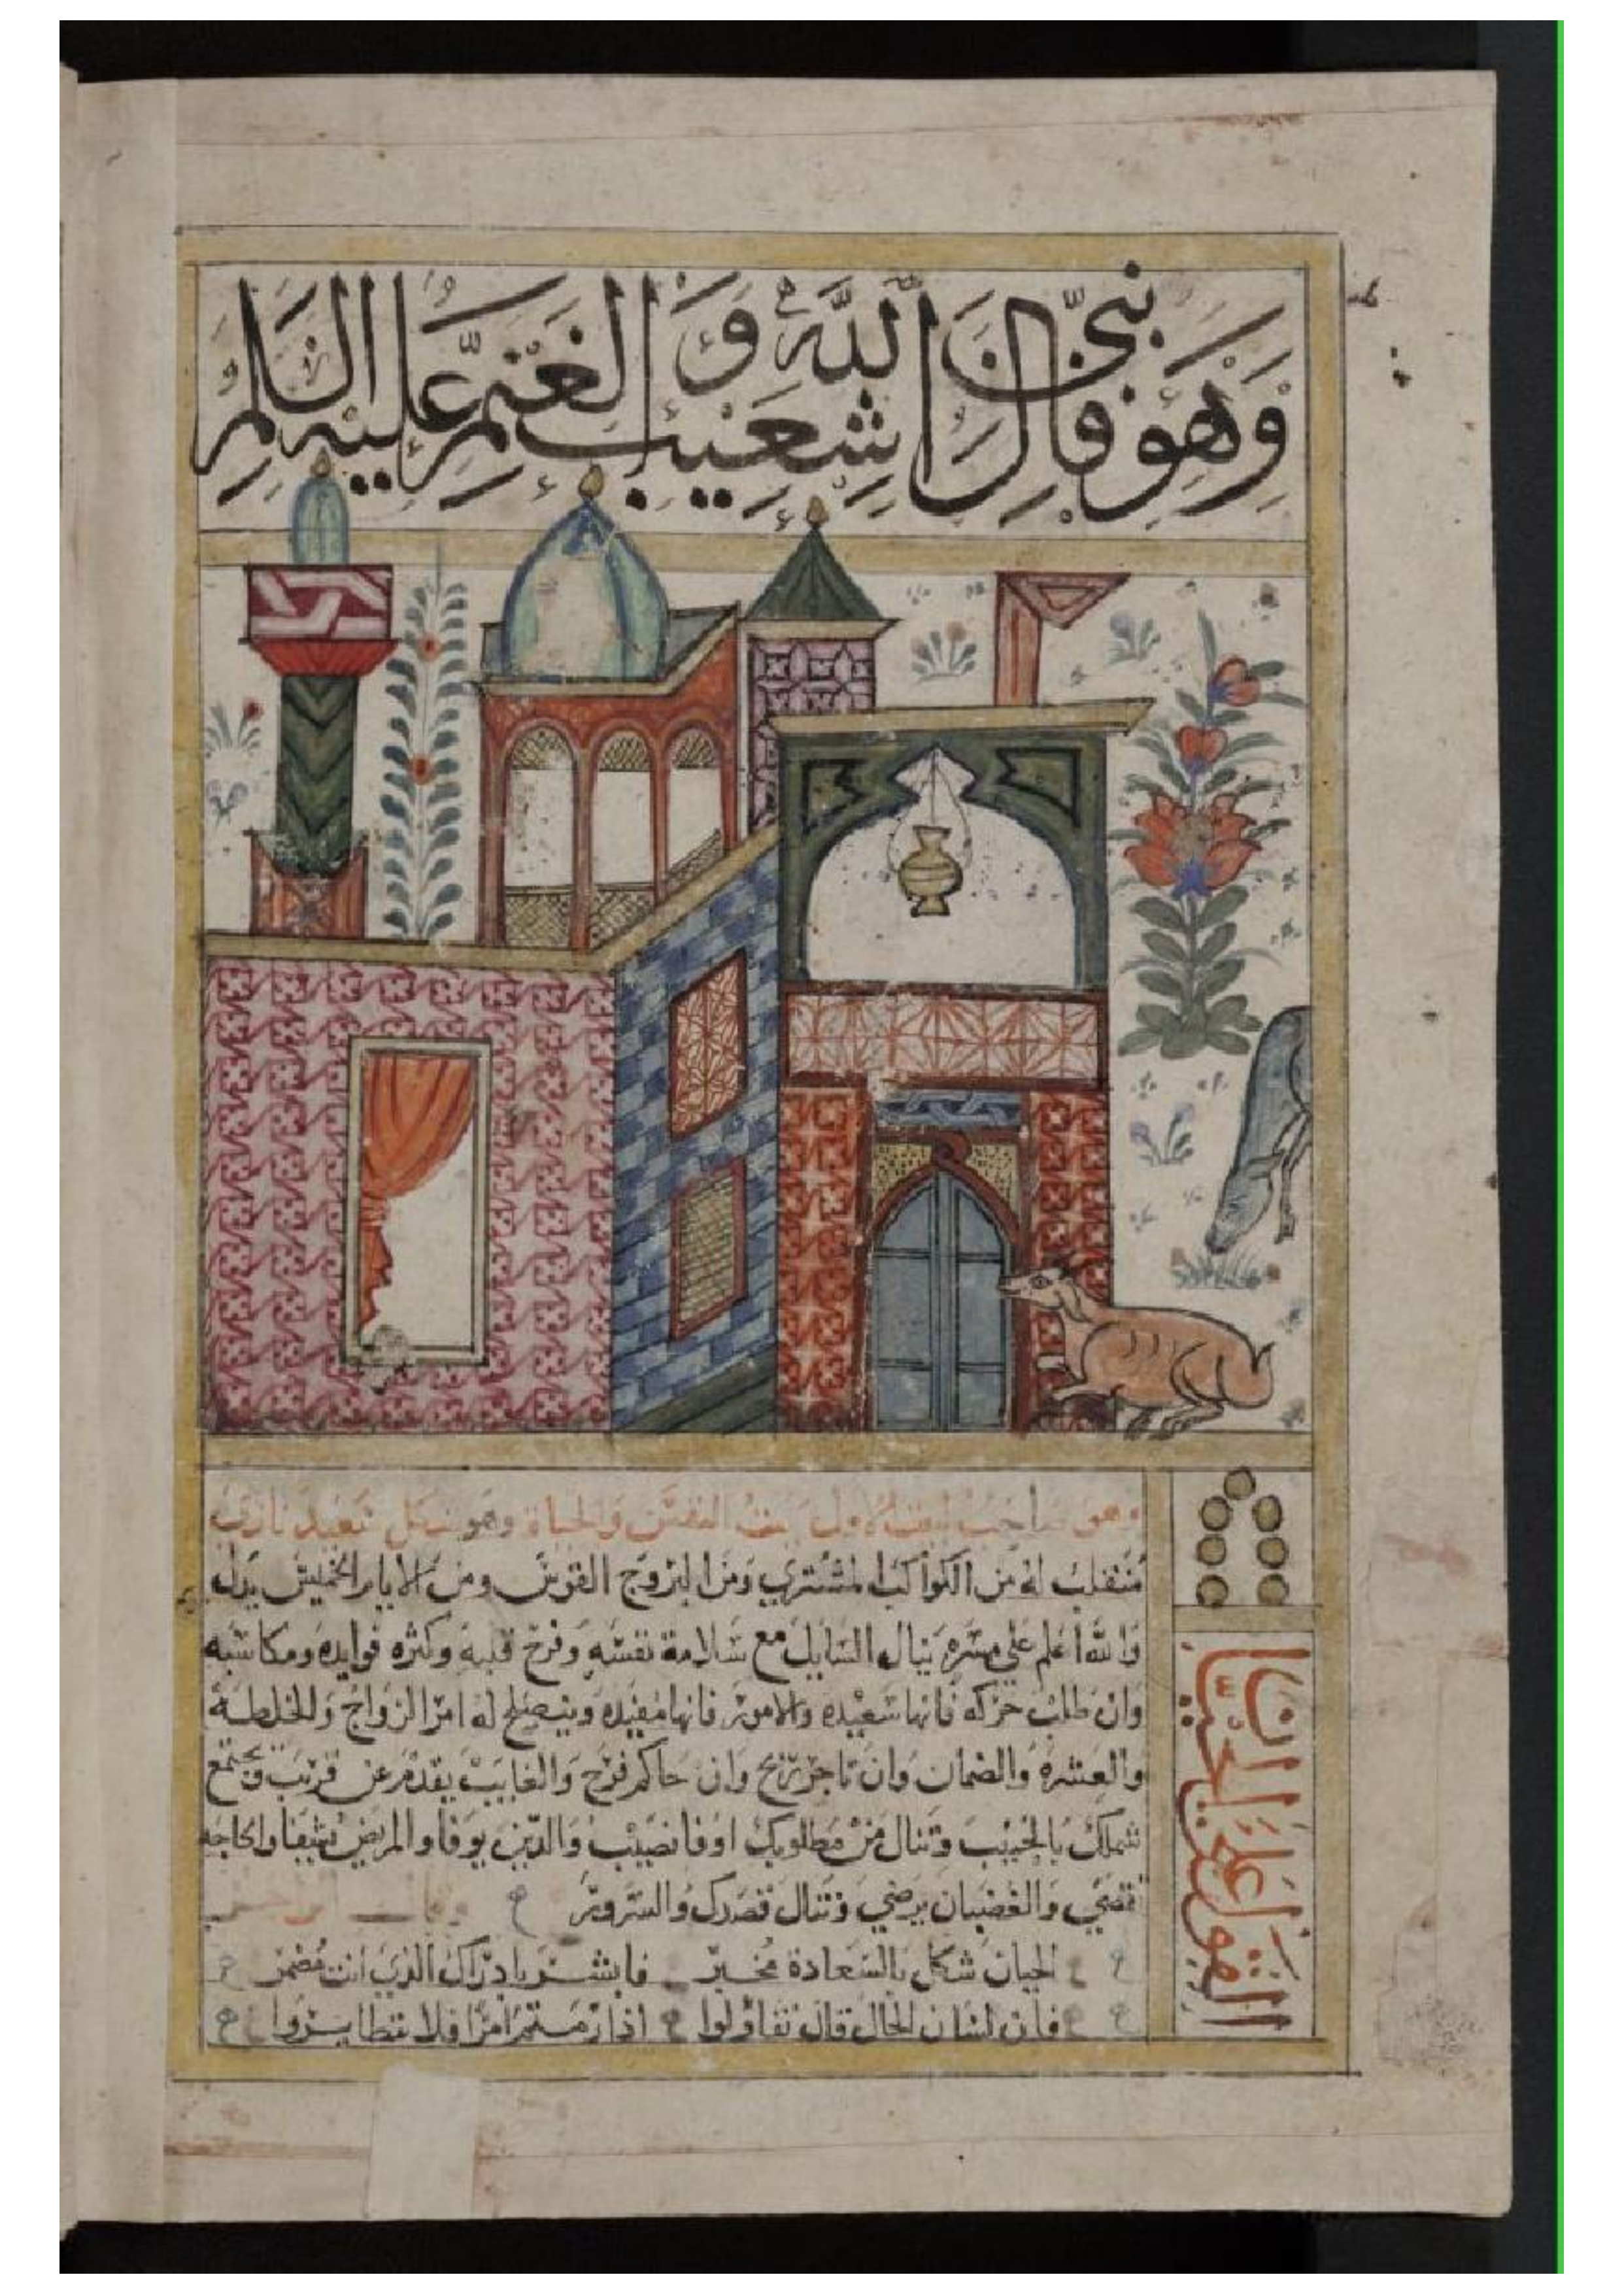 وَهُوَ فَال نبيّ اللّه شعيب
وَ الغنم عليه السلام
وهو صاحب البيت الاول بيت النفس والحياة وهو شكل سعيد ناري
منقلب له من الكواكب المشتري ومن البروج القوس ومن الايام الخميس يدل
والله أعلم على مسره ينال السايل مع سلامة نفسه وفرح قلبه وكثره فوايده ومكاسبه
وان طلب حركه فانها سعيده والامور فانها مفيده وينصلح له امر الزواج والخلطة
والعشره والضمان وان تاجر تربح وان حاكم فرح والغايب يقدم عن قريب ويجتمع
شملك بالحبيب وتنال من مطلوبك اوفا نصيب والدين يوفا والمريض يشفا والحاجه
تقضي والغضبان يرضي وتنال قصدك والسرور
الحيان شكل بالسعادة مخبر فابشر بادراك الذي انت مضمر
فان لسان الحال قال تفاولوا اذا رمتم امرا فلا تتطايروا
القول على اللحيان